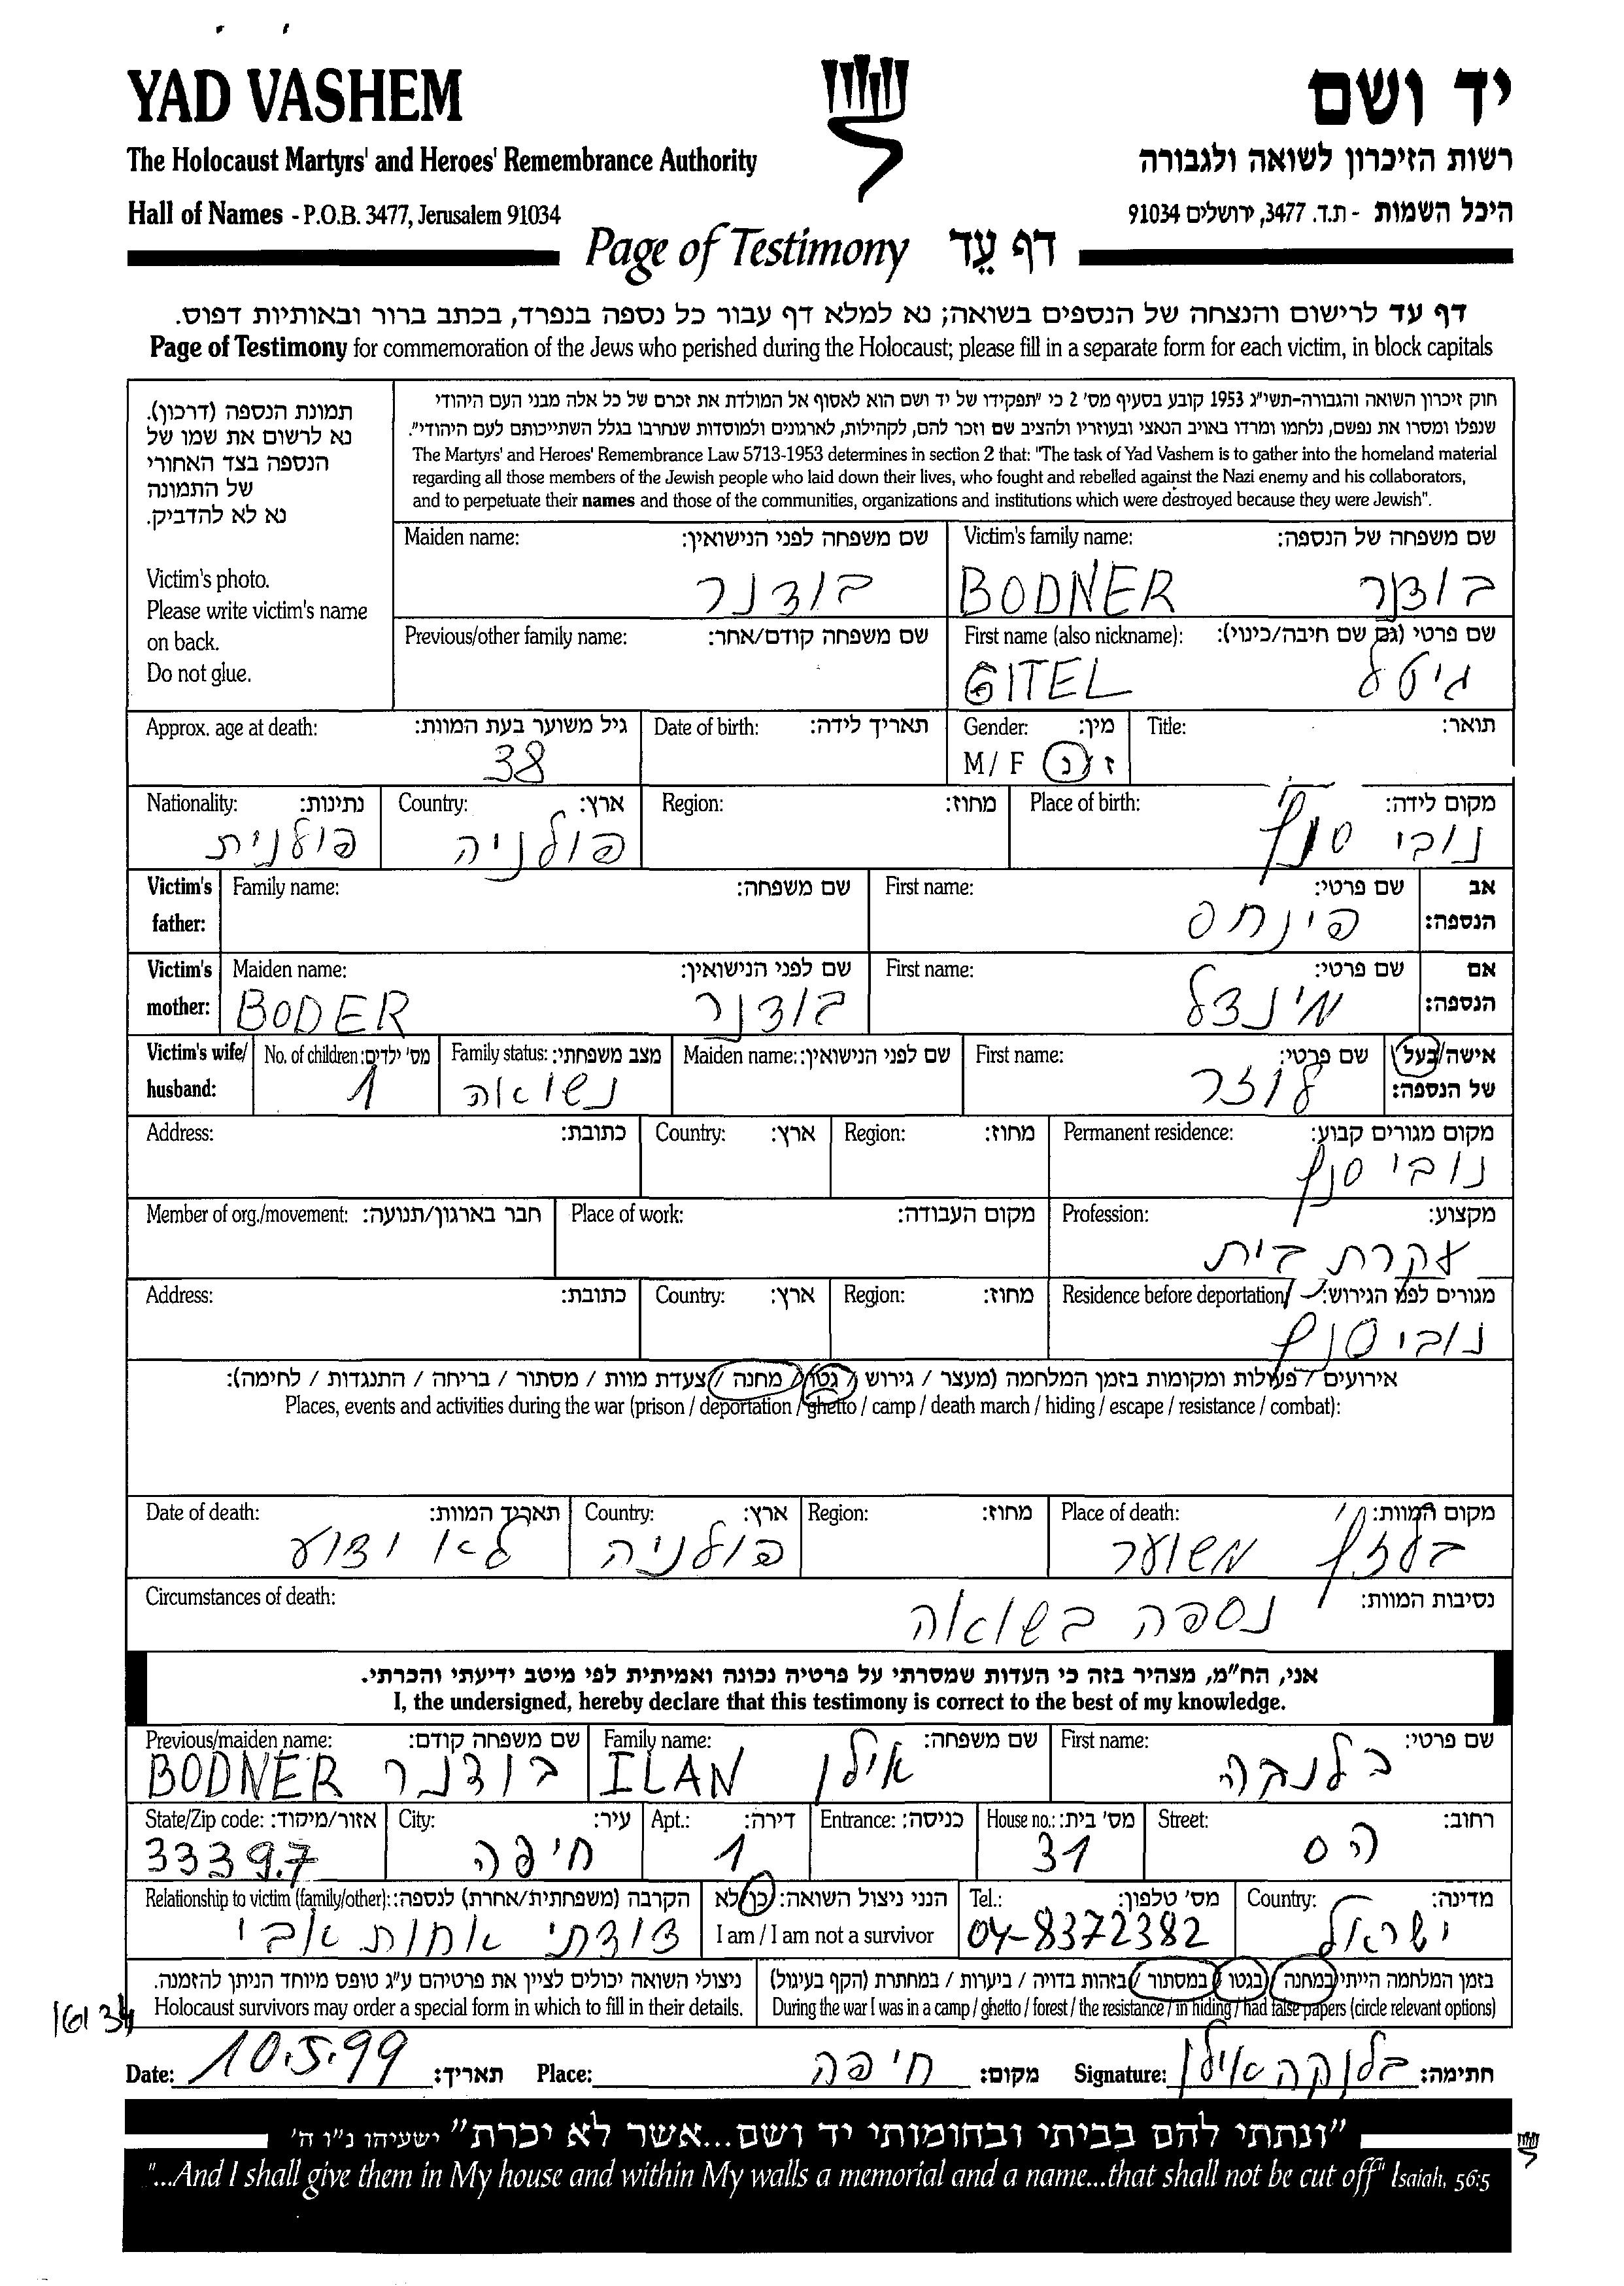 YAD VASHEM
יד ושם
The Holocaust Martyrs' and Heroes' Remembrance Authority
רשות הזיכרון לשואה ולגבורה
Hall of Names - P.O.B. 3477, Jerusalem 91034
היכל השמות - ת.ד. 3477, ירושלים 91034
Page of Testimony דף עֵד
דף עד לרישום והנצחה של הנספים בשואה; נא למלא דף עבור כל נספה בנפרד, בכתב ברור ובאותיות דפוס.
Page of Testimony for commemoration of the Jews who perished during the Holocaust; please fill in a separate form for each victim, in block capitals
תמונת הנספה (דרכון).
נא לרשום את שמו של
הנספה בצד האחורי
של התמונה
נא לא להדביק.
Victim's photo.
Please write victim's name
on back.
Do not glue.
חוק זיכרון השואה והגבורה-תשי"ג 1953 קובע בסעיף מס' 2 כי "תפקידו של יד ושם הוא לאסוף אל המולדת את זכרם של כל אלה מבני העם היהודי
שנפלו ומסרו את נפשם, נלחמו ומרדו באויב הנאצי ובעוזריו ולהציב שם וזכר להם, לקהילות, לארגונים ולמוסדות שנחרבו בגלל השתייכותם לעם היהודי".
The Martyrs' and Heroes' Remembrance Law 5713-1953 determines in section 2 that: "The task of Yad Vashem is to gather into the homeland material
regarding all those members of the Jewish people who laid down their lives, who fought and rebelled against the Nazi enemy and his collaborators,
and to perpetuate their names and those of the communities, organizations and institutions which were destroyed because they were Jewish".
Victim's family name: שם משפחה של הנספה:
BODNER בודנר
Maiden name: שם משפחה לפני הנישואין:
בודנר
First name (also nickname): שם פרטי (גם שם חיבה/כינוי):
GITEL גיטל
Previous/other family name: שם משפחה קודם/אחר:
Title: תואר:
Gender: מין:
M / F ז / נ
Date of birth: תאריך לידה:
Approx. age at death: גיל משוער בעת המוות:
38
Place of birth: מקום לידה:
נובי סונץ'
Region: מחוז:
Country: ארץ:
פולניה
Nationality: נתינות:
פולנית
Victim's father: אב הנספה:
First name: שם פרטי:
פינחס
Family name: שם משפחה:
Victim's mother: אם הנספה:
First name: שם פרטי:
מינדל
Maiden name: שם לפני הנישואין:
BODER בודנר
Victim's wife/ husband: אישה/בעל של הנספה:
First name: שם פרטי:
לוזר
Maiden name: שם לפני הנישואין:
Family status: מצב משפחתי:
נשואה
No. of children: מס' ילדים:
1
Permanent residence: מקום מגורים קבוע:
נובי סונץ
Region: מחוז:
Country: ארץ:
Address: כתובת:
Profession: מקצוע:
עקרת בית
Place of work: מקום העבודה:
Member of org./movement: חבר בארגון/תנועה:
Residence before deportation: מגורים לפני הגירוש:
נובי סונץ'
Region: מחוז:
Country: ארץ:
Address: כתובת:
אירועים / פעולות ומקומות בזמן המלחמה (מעצר / גירוש / גטו / מחנה / צעדת מוות / מסתור / בריחה / התנגדות / לחימה):
Places, events and activities during the war (prison / deportation / ghetto / camp / death march / hiding / escape / resistance / combat):
Place of death: מקום המוות:
בלזץ' משוער
Region: מחוז:
Country: ארץ:
פולניה
Date of death: תאריך המוות:
לא ידוע
Circumstances of death: נסיבות המוות:
נספה בשואה
אני, הח"מ, מצהיר בזה כי העדות שמסרתי על פרטיה נכונה ואמיתית לפי מיטב ידיעתי והכרתי.
I, the undersigned, hereby declare that this testimony is correct to the best of my knowledge.
First name: שם פרטי:
בלנקה
Family name: שם משפחה:
ILAN אילן
Previous/maiden name: שם משפחה קודם:
BODNER בודנר
Street: רחוב:
הס
House no.: מס' בית:
31
Entrance: כניסה:
Apt.: דירה:
1
City: עיר:
חיפה
State/Zip code: אזור/מיקוד:
33397
Country: מדינה:
ישראל
Tel.: מס' טלפון:
04-8372382
הנני ניצול השואה: כן/לא
I am / I am not a survivor
Relationship to victim (family/other): הקרבה (משפחתית/אחרת) לנספה:
דודתי אחות אבי
בזמן המלחמה הייתי במחנה / בגטו / במסתור / בזהות בדויה / ביערות / במחתרת (הקף בעיגול)
During the war I was in a camp / ghetto / forest / the resistance / in hiding / had false papers (circle relevant options)
ניצולי השואה יכולים לציין את פרטיהם ע"ג טופס מיוחד הניתן להזמנה.
Holocaust survivors may order a special form in which to fill in their details.
Date: 10.5.99 תאריך:
Place: חיפה מקום:
Signature: בלנקה אילן חתימה:
"ונתתי להם בביתי ובחומותי יד ושם...אשר לא יכרת" ישעיהו נ"ו ה'
"...And I shall give them in My house and within My walls a memorial and a name...that shall not be cut off" Isaiah, 56:5